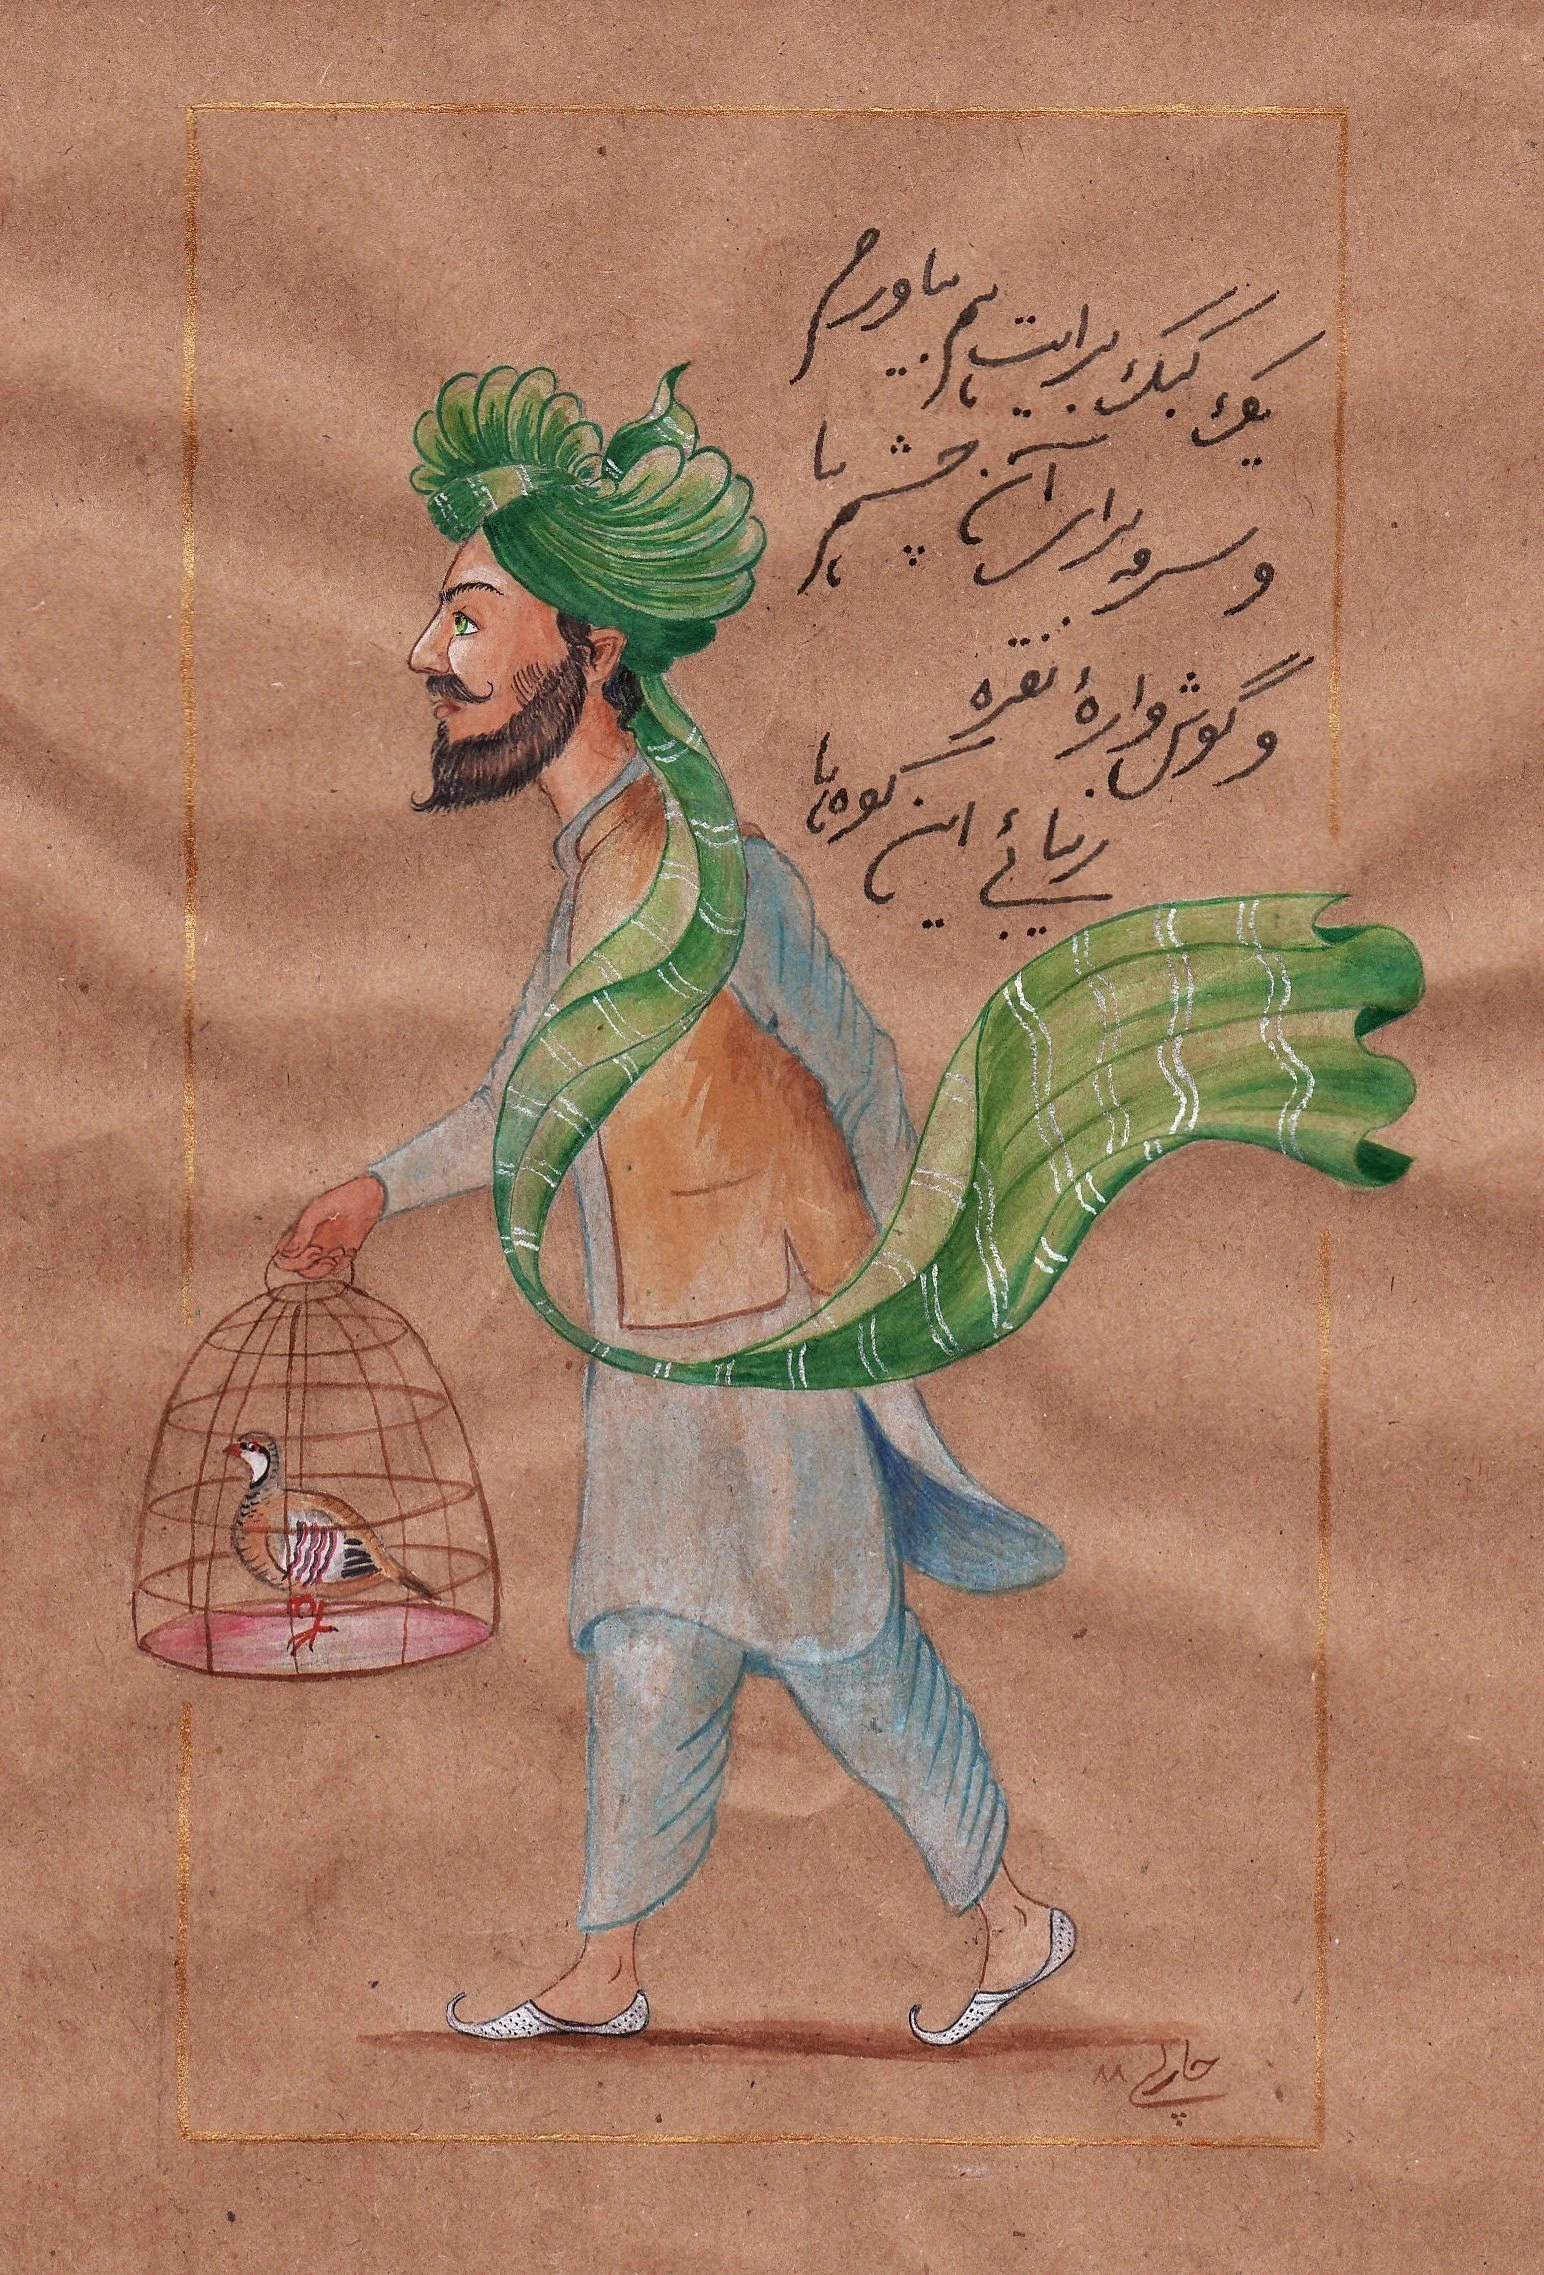 یک کبک برایت هم بیاورم
و سرمه برای آن چشم ها
و گوش وارهٔ نقره
زیبائی این کوه ها
چارلی ۸۸